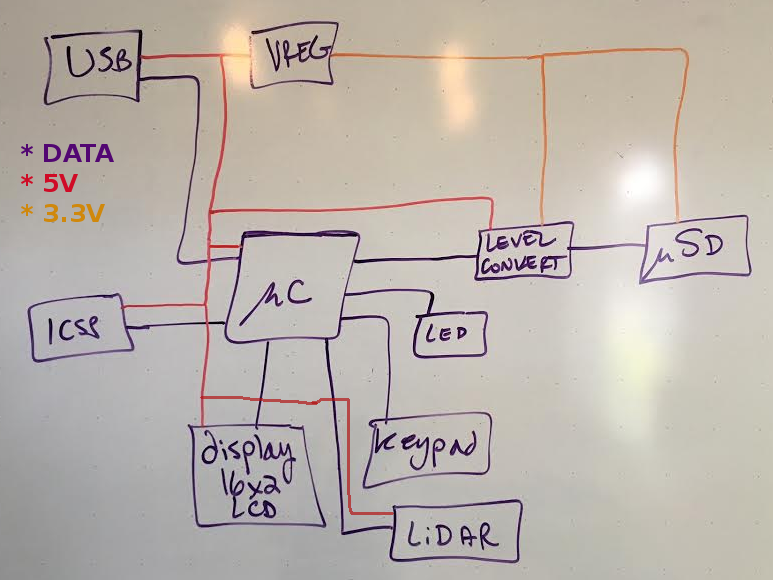 USB
VREG
* DATA
* 5V
* 3.3V
LEVEL
CONVERT
μSD
μC
ICSP
LED
display
16x2
LCD
Keypad
LiDAR